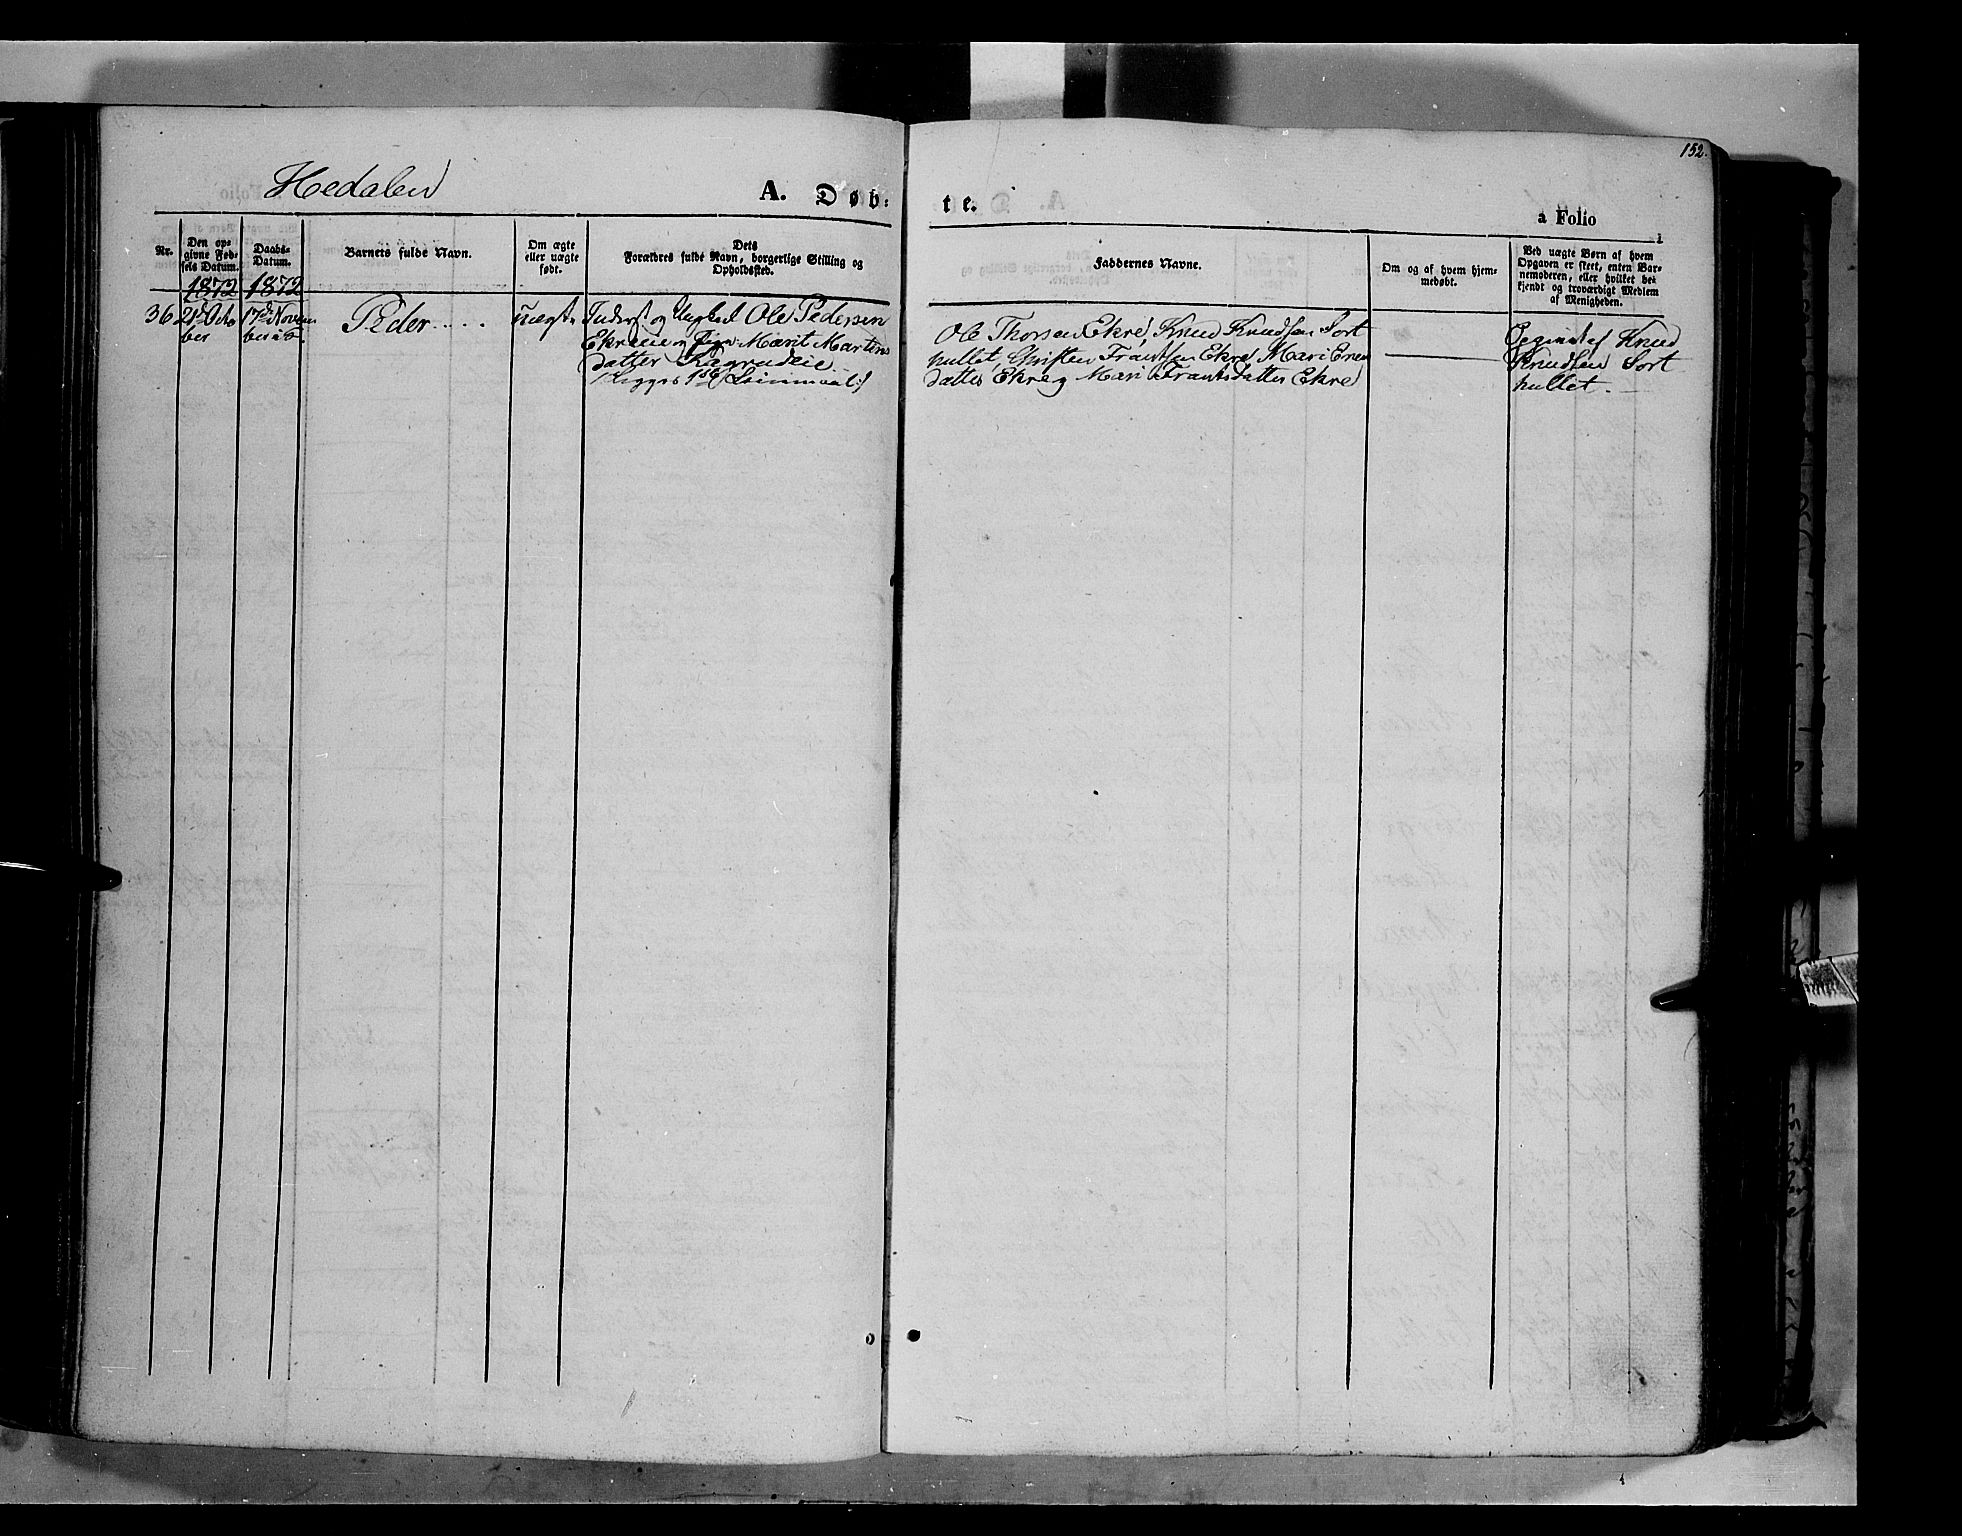 152.
Hedalen
A. Døb-
te.
a Folio
Nr.
Den op-
givne Fød-
sels Datum.
Daabs-
Datum.
Barnets fulde Navn.
Om ægte
eller uægte
født.
Dets
Forældres fulde Navn, borgerlige Stilling og
Opholdssted.
Faddernes Navne.
Om og af hvem hjem-
medøbt.
Ved uægte Børn af hvem
Opgaven er skeet, enten Bar-
nemoderen, eller hvilket be-
kjendt og troværdigt Medlem
af Menigheden.
1872 1872
36
21de Octo
ber
17de Novem
ber
Peder
uægte
Inderst og Ungkarl Ole Pedersen
Ekreeie og Pige Marit Martins
datter
/: Begges 1ste Leiermaal :/
Ole Thorsen Ekre, Knud Knudsen Sort
hullet, Christen Frantsen Ekre, Mari
datter Ekre og Mari Frantsdatter Ekre
Opgivet af Knud
Knudsen Sort
hullet.